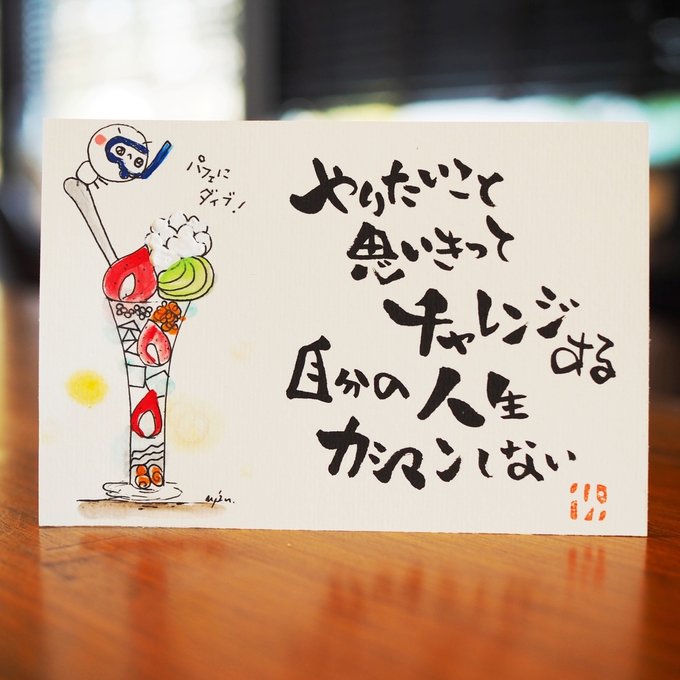 パフェに
ダイブ!
やりたいこと
思いきって
チャレンジする
自分の人生
ガマンしない